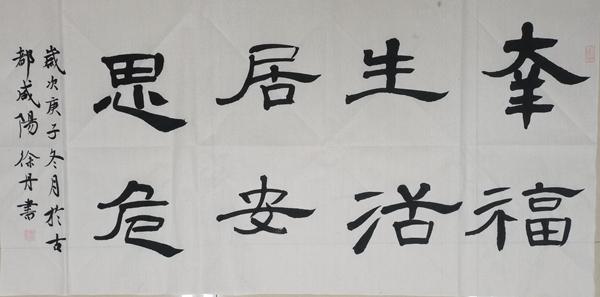 幸福
生活
居安
思危
歲次庚子冬月於古
都咸陽徐丹書